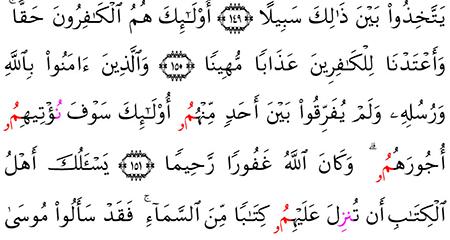 يَتَّخِذُواْ بَيْنَ ذَٰلِكَ سَبِيلًا ۝١٤٩ أُوْلَٰٓئِكَ هُمُ ٱلْكَٰفِرُونَ حَقًّا ۚ
وَأَعْتَدْنَا لِلْكَٰفِرِينَ عَذَابًا مُّهِينًا ۝١٥٠ وَٱلَّذِينَ ءَامَنُواْ بِٱللَّهِ
وَرُسُلِهِۦ وَلَمْ يُفَرِّقُواْ بَيْنَ أَحَدٍ مِّنْهُمُۥ أُوْلَٰٓئِكَ سَوْفَ نُؤْتِيهِمُۥ
أُجُورَهُمُۥ ۗ وَكَانَ ٱللَّهُ غَفُورًا رَّحِيمًا ۝١٥١ يَسْـَٔلُكَ أَهْلُ
ٱلْكِتَٰبِ أَن تُنزِلَ عَلَيْهِمُۥ كِتَٰبًا مِّنَ ٱلسَّمَآءِ ۚ فَقَدْ سَأَلُواْ مُوسَىٰ